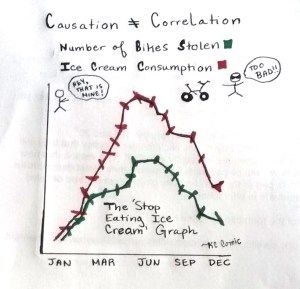 Causation ≠ Correlation
Number of Bikes Stolen
Ice Cream Consumption
HEY, THAT IS MINE!
TOO BAD!!
The 'Stop Eating Ice Cream' Graph
JAN MAR JUN SEP DEC